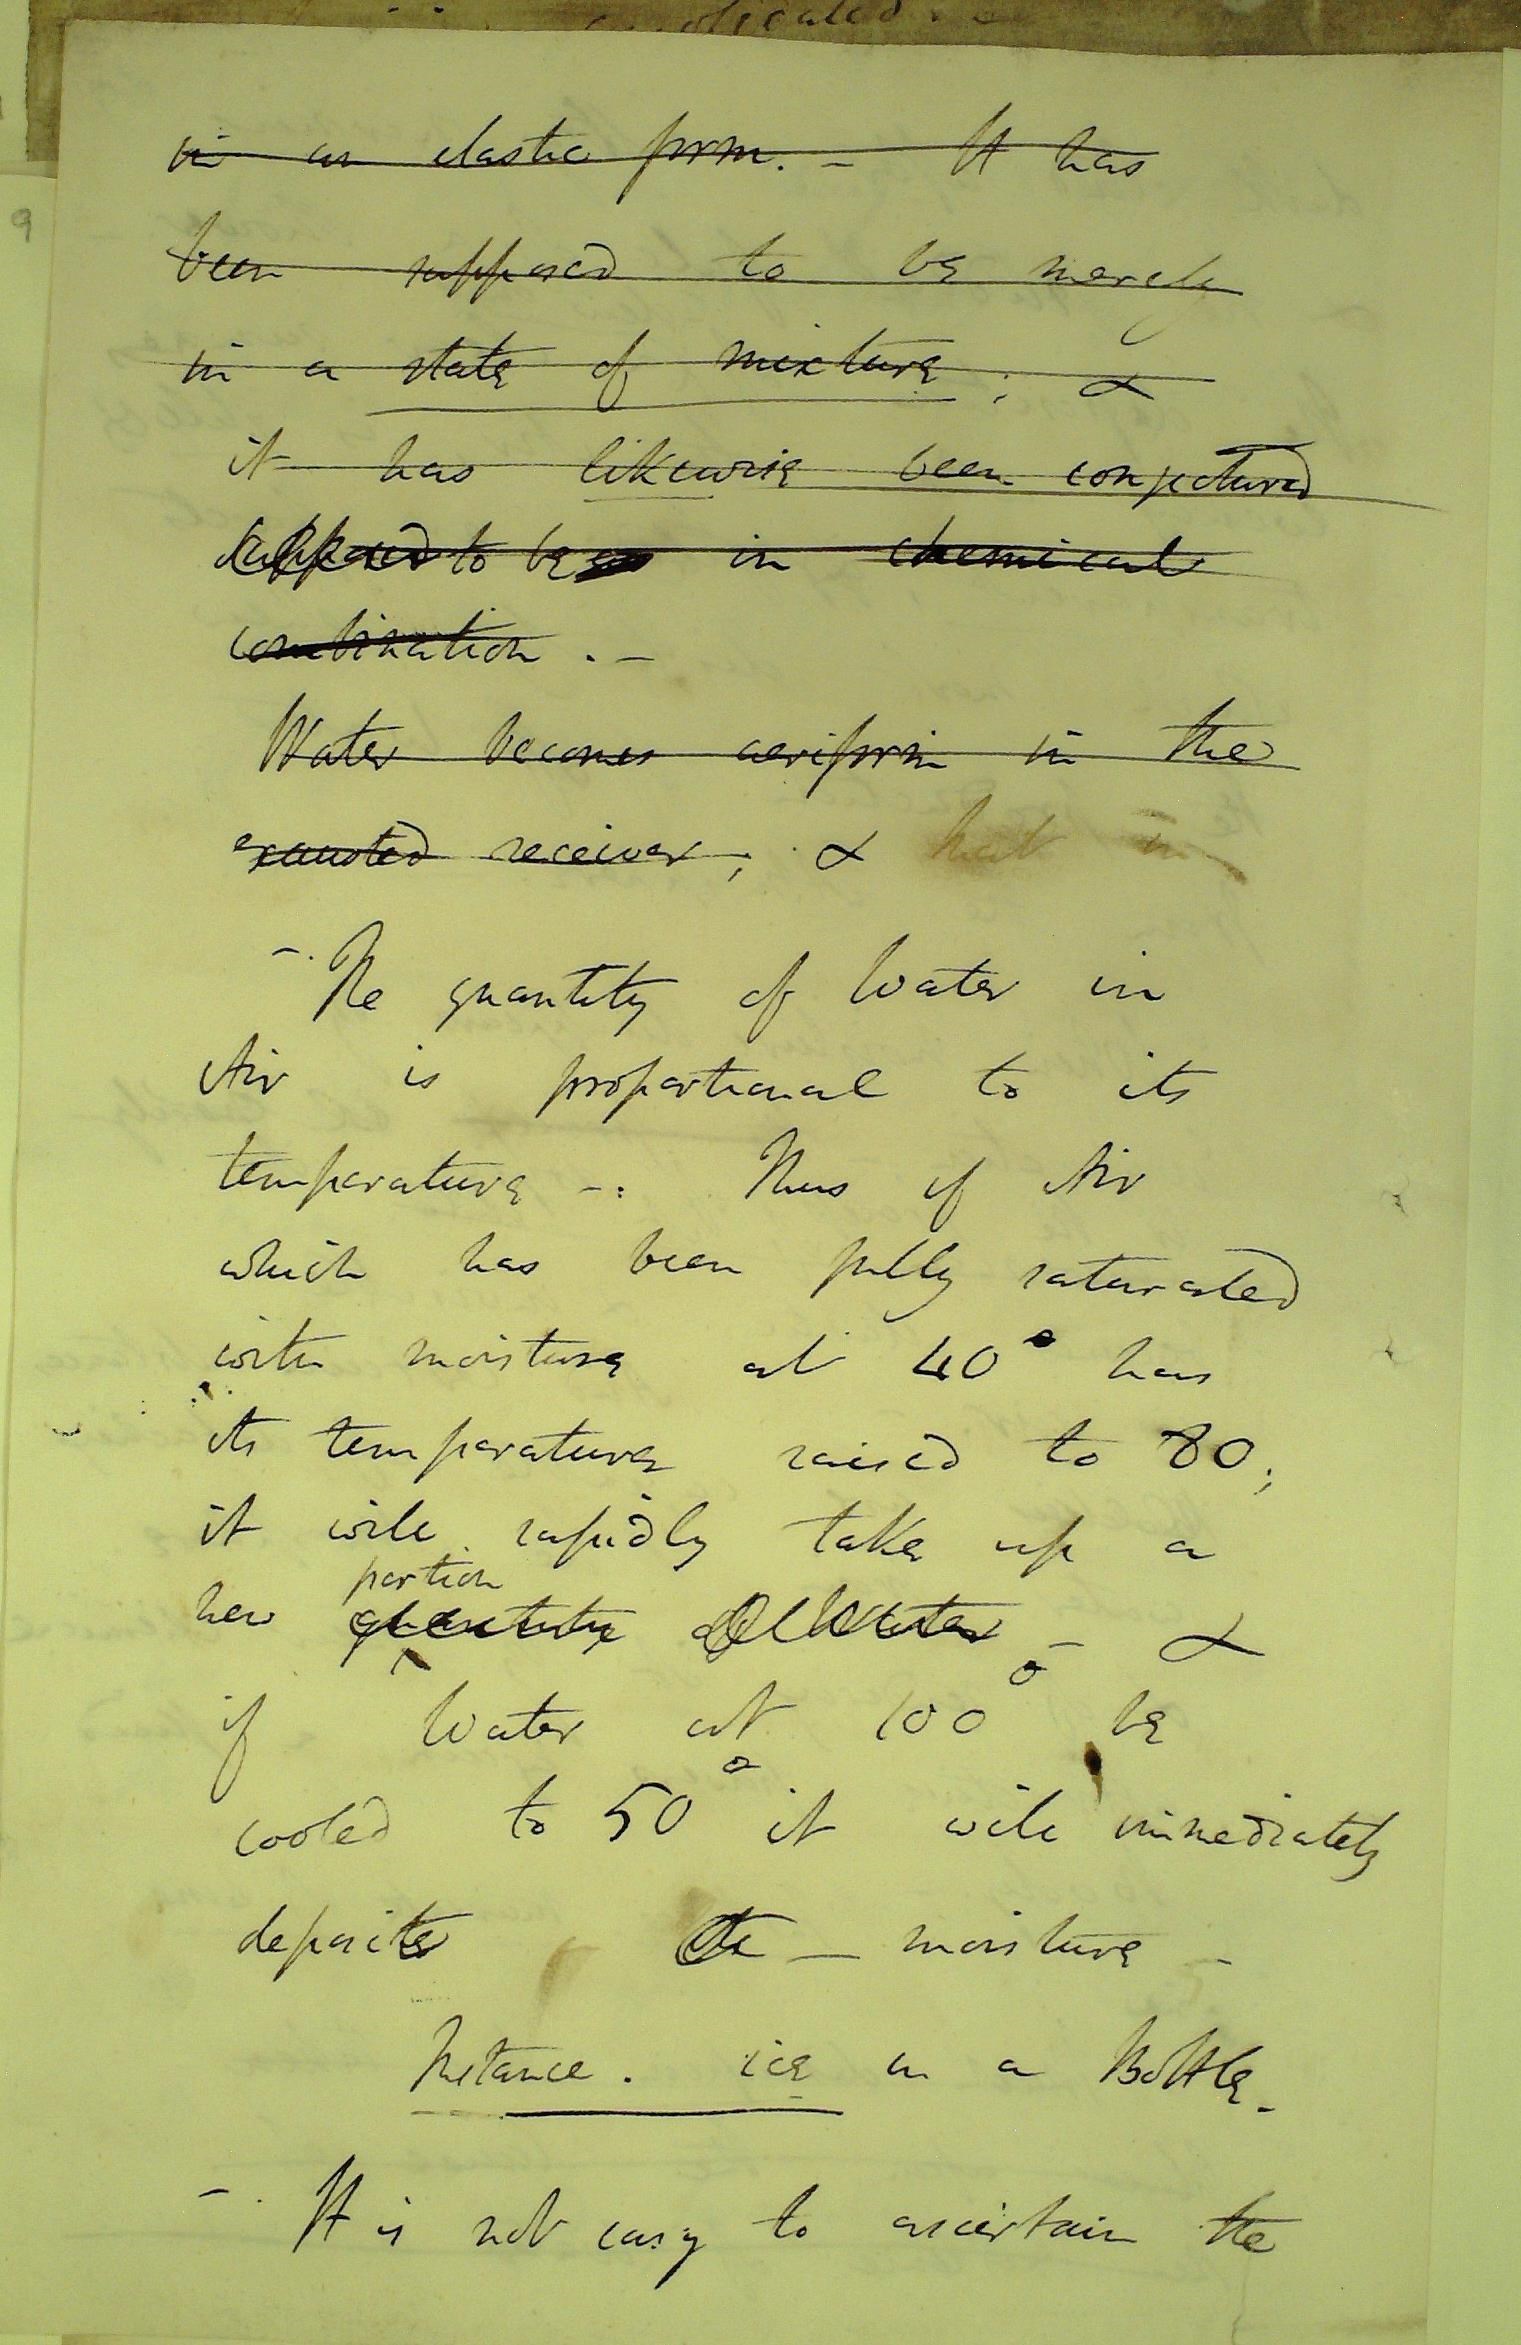 in an elastic form. – It has
been supposed to be merely
in a state of mixture; &
it has likewise been conjectured
supposed to be in chemical
combination. –
Water becomes aeriform in the
exausted receiver; & heat in
–. The quantity of Water in
Air is proportional to its
temperature –: Thus if Air
which has been fully saturated
with moisture at 40° has
its temperature raised to 80;
it will rapidly take up a
portion
new quantity of Water – &
if Water at 100° be
cooled to 50° it will immediately
deposite the – moisture –
Instance. ice in a Bottle. –
–. It is not easy to ascertain the